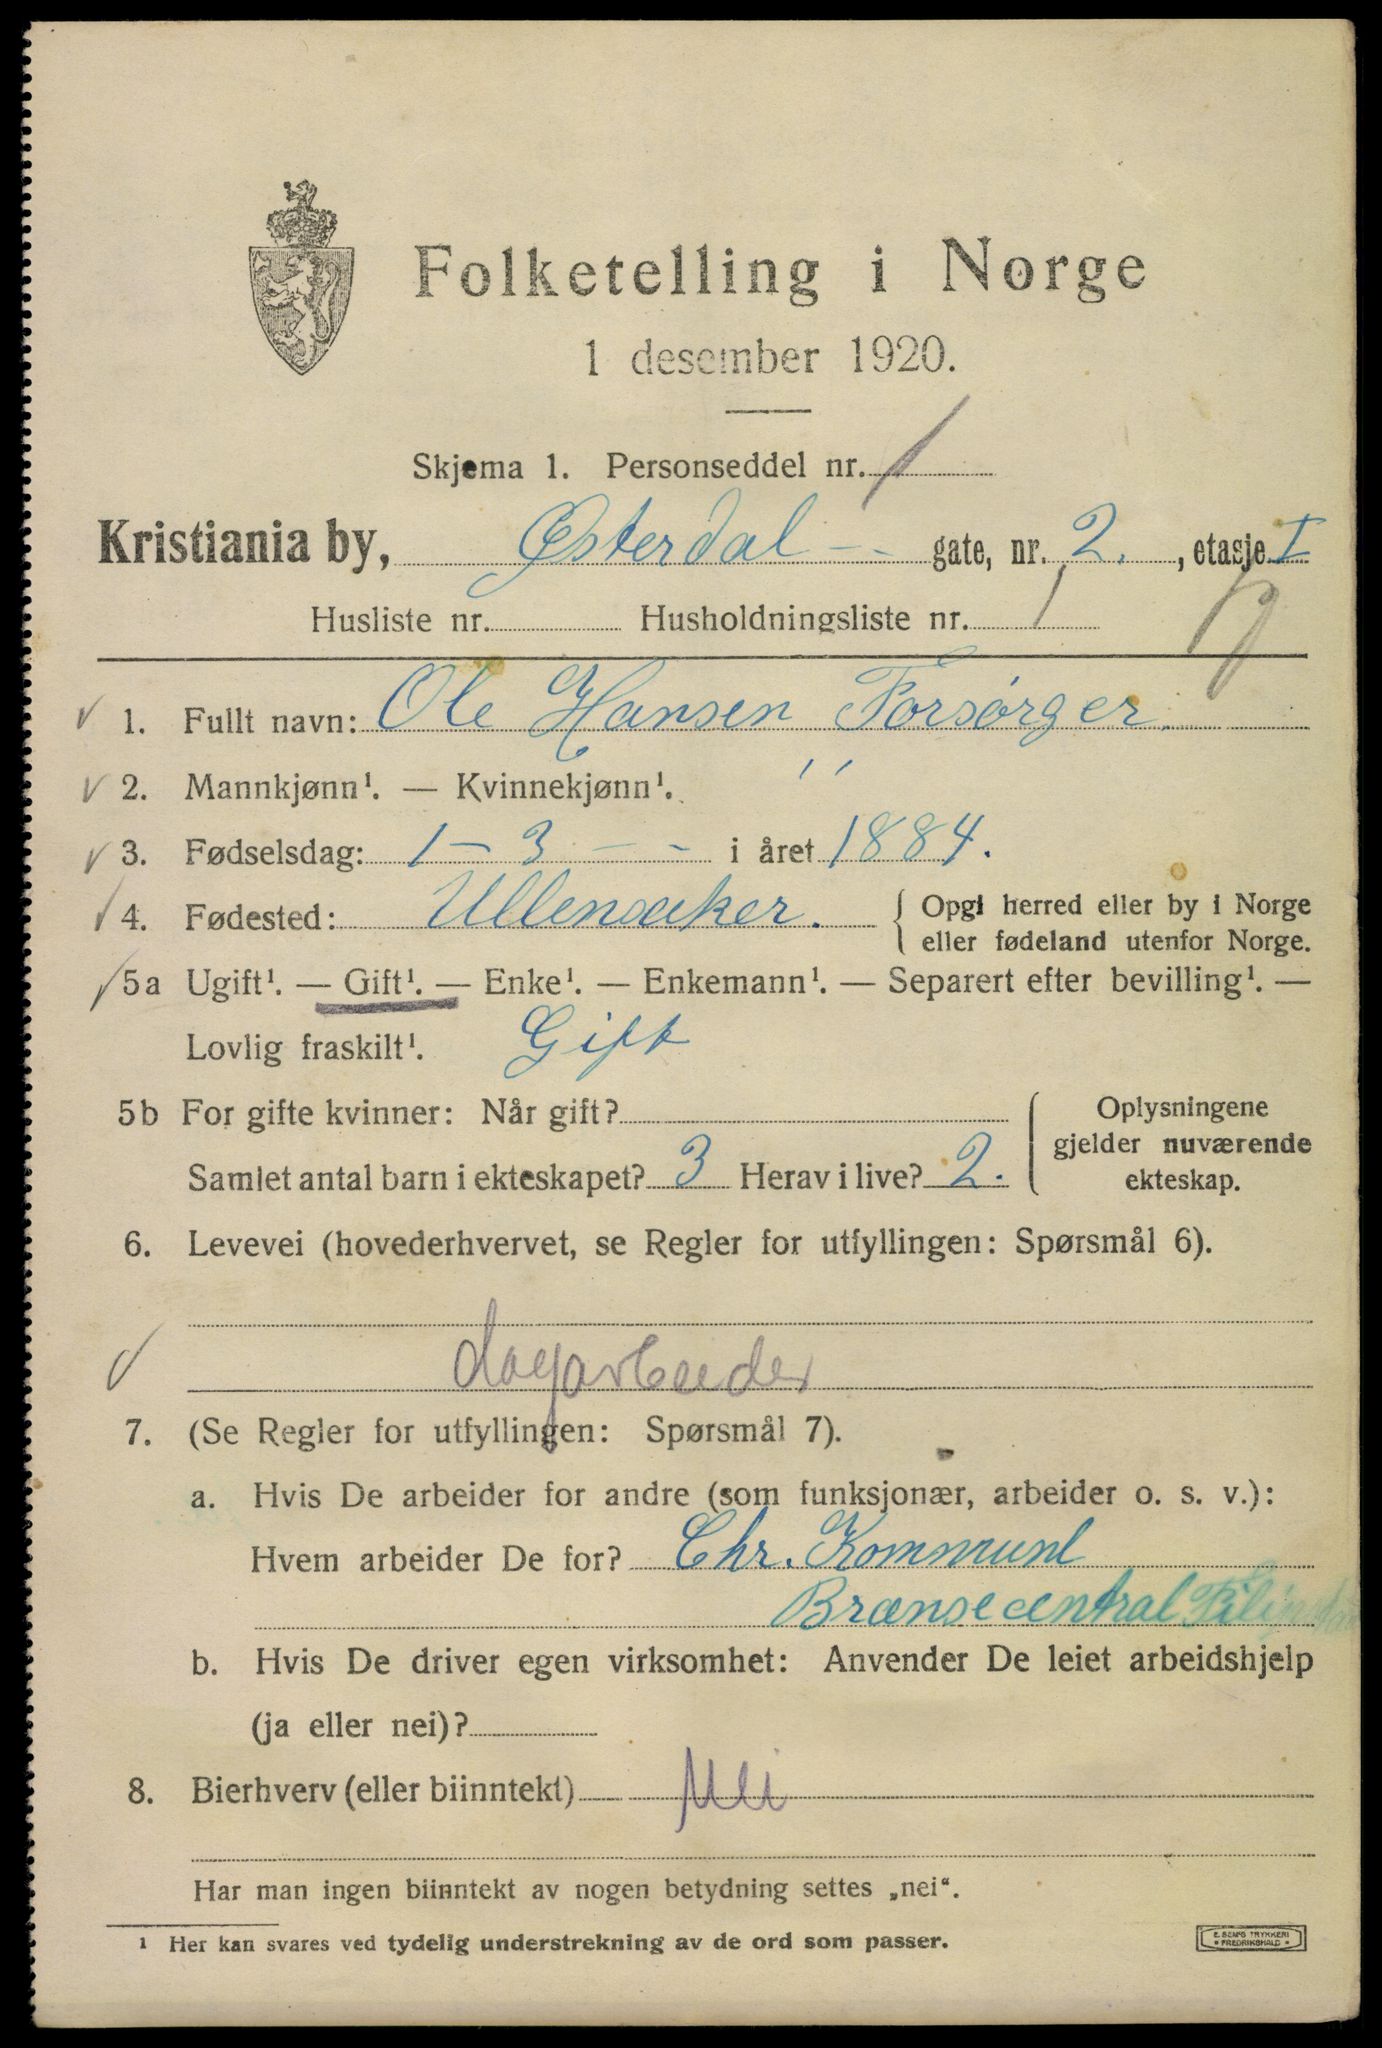 Folketelling i Norge
1 desember 1920.
Skjema 1. Personseddel nr. 1
Kristiania by, Østerdal -- gate, nr. 2. , etasje I
Husliste nr. Husholdningsliste nr. 1
1. Fullt navn: Ole Hansen Forsørger.
2. Mannkjønn¹. — Kvinnekjønn¹.
3. Fødselsdag: 1 - 3 - - i året 1884.
4. Fødested: Ullensaker. { Opgi herred eller by i Norge
eller fødeland utenfor Norge.
5a Ugift¹. — Gift¹. — Enke¹. — Enkemann¹. — Separert efter bevilling¹. —
Lovlig fraskilt¹. Gift
5b For gifte kvinner: Når gift? { Oplysningene
gjelder nuværende
Samlet antal barn i ekteskapet? 3 Herav i live? 2. ekteskap.
6. Levevei (hovederhvervet, se Regler for utfyllingen: Spørsmål 6).
dagarbeider
7. (Se Regler for utfyllingen: Spørsmål 7).
a. Hvis De arbeider for andre (som funksjonær, arbeider o. s. v.):
Hvem arbeider De for? Chr. Kommune
Brænsecentral
b. Hvis De driver egen virksomhet: Anvender De leiet arbeidshjelp
(ja eller nei)?
8. Bierhverv (eller biinntekt) Nei
Har man ingen biinntekt av nogen betydning settes „nei“.
¹ Her kan svares ved tydelig understrekning av de ord som passer.
E. SEM'S TRYKKERI
• FREDRIKSHALD •